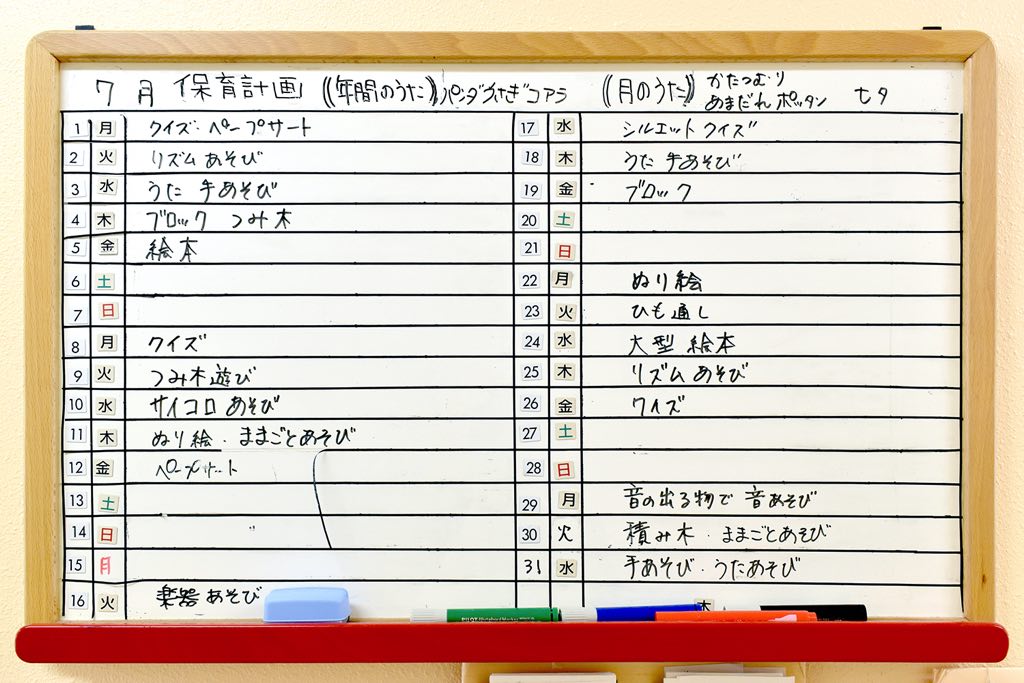 7 月 保育計画 (年間のうた) パンダうさぎコアラ (月のうた) かたつむり あまだれポッタン 七夕
1 月 クイズ・ペープサート
2 火 リズムあそび
3 水 うた 手あそび
4 木 ブロック つみ木
5 金 絵本
6 土
7 日
8 月 クイズ
9 火 つみ木遊び
10 水 サイコロあそび
11 木 ぬり絵・ままごとあそび
12 金 ペープサート
13 土
14 日
15 月
16 火 楽器あそび
17 水 シルエットクイズ
18 木 うた 手あそび
19 金 ブロック
20 土
21 日
22 月 ぬり絵
23 火 ひも通し
24 水 大型 絵本
25 木 リズムあそび
26 金 クイズ
27 土
28 日
29 月 音の出る物で 音あそび
30 火 積み木・ままごとあそび
31 水 手あそび・うたあそび
木
PILOT